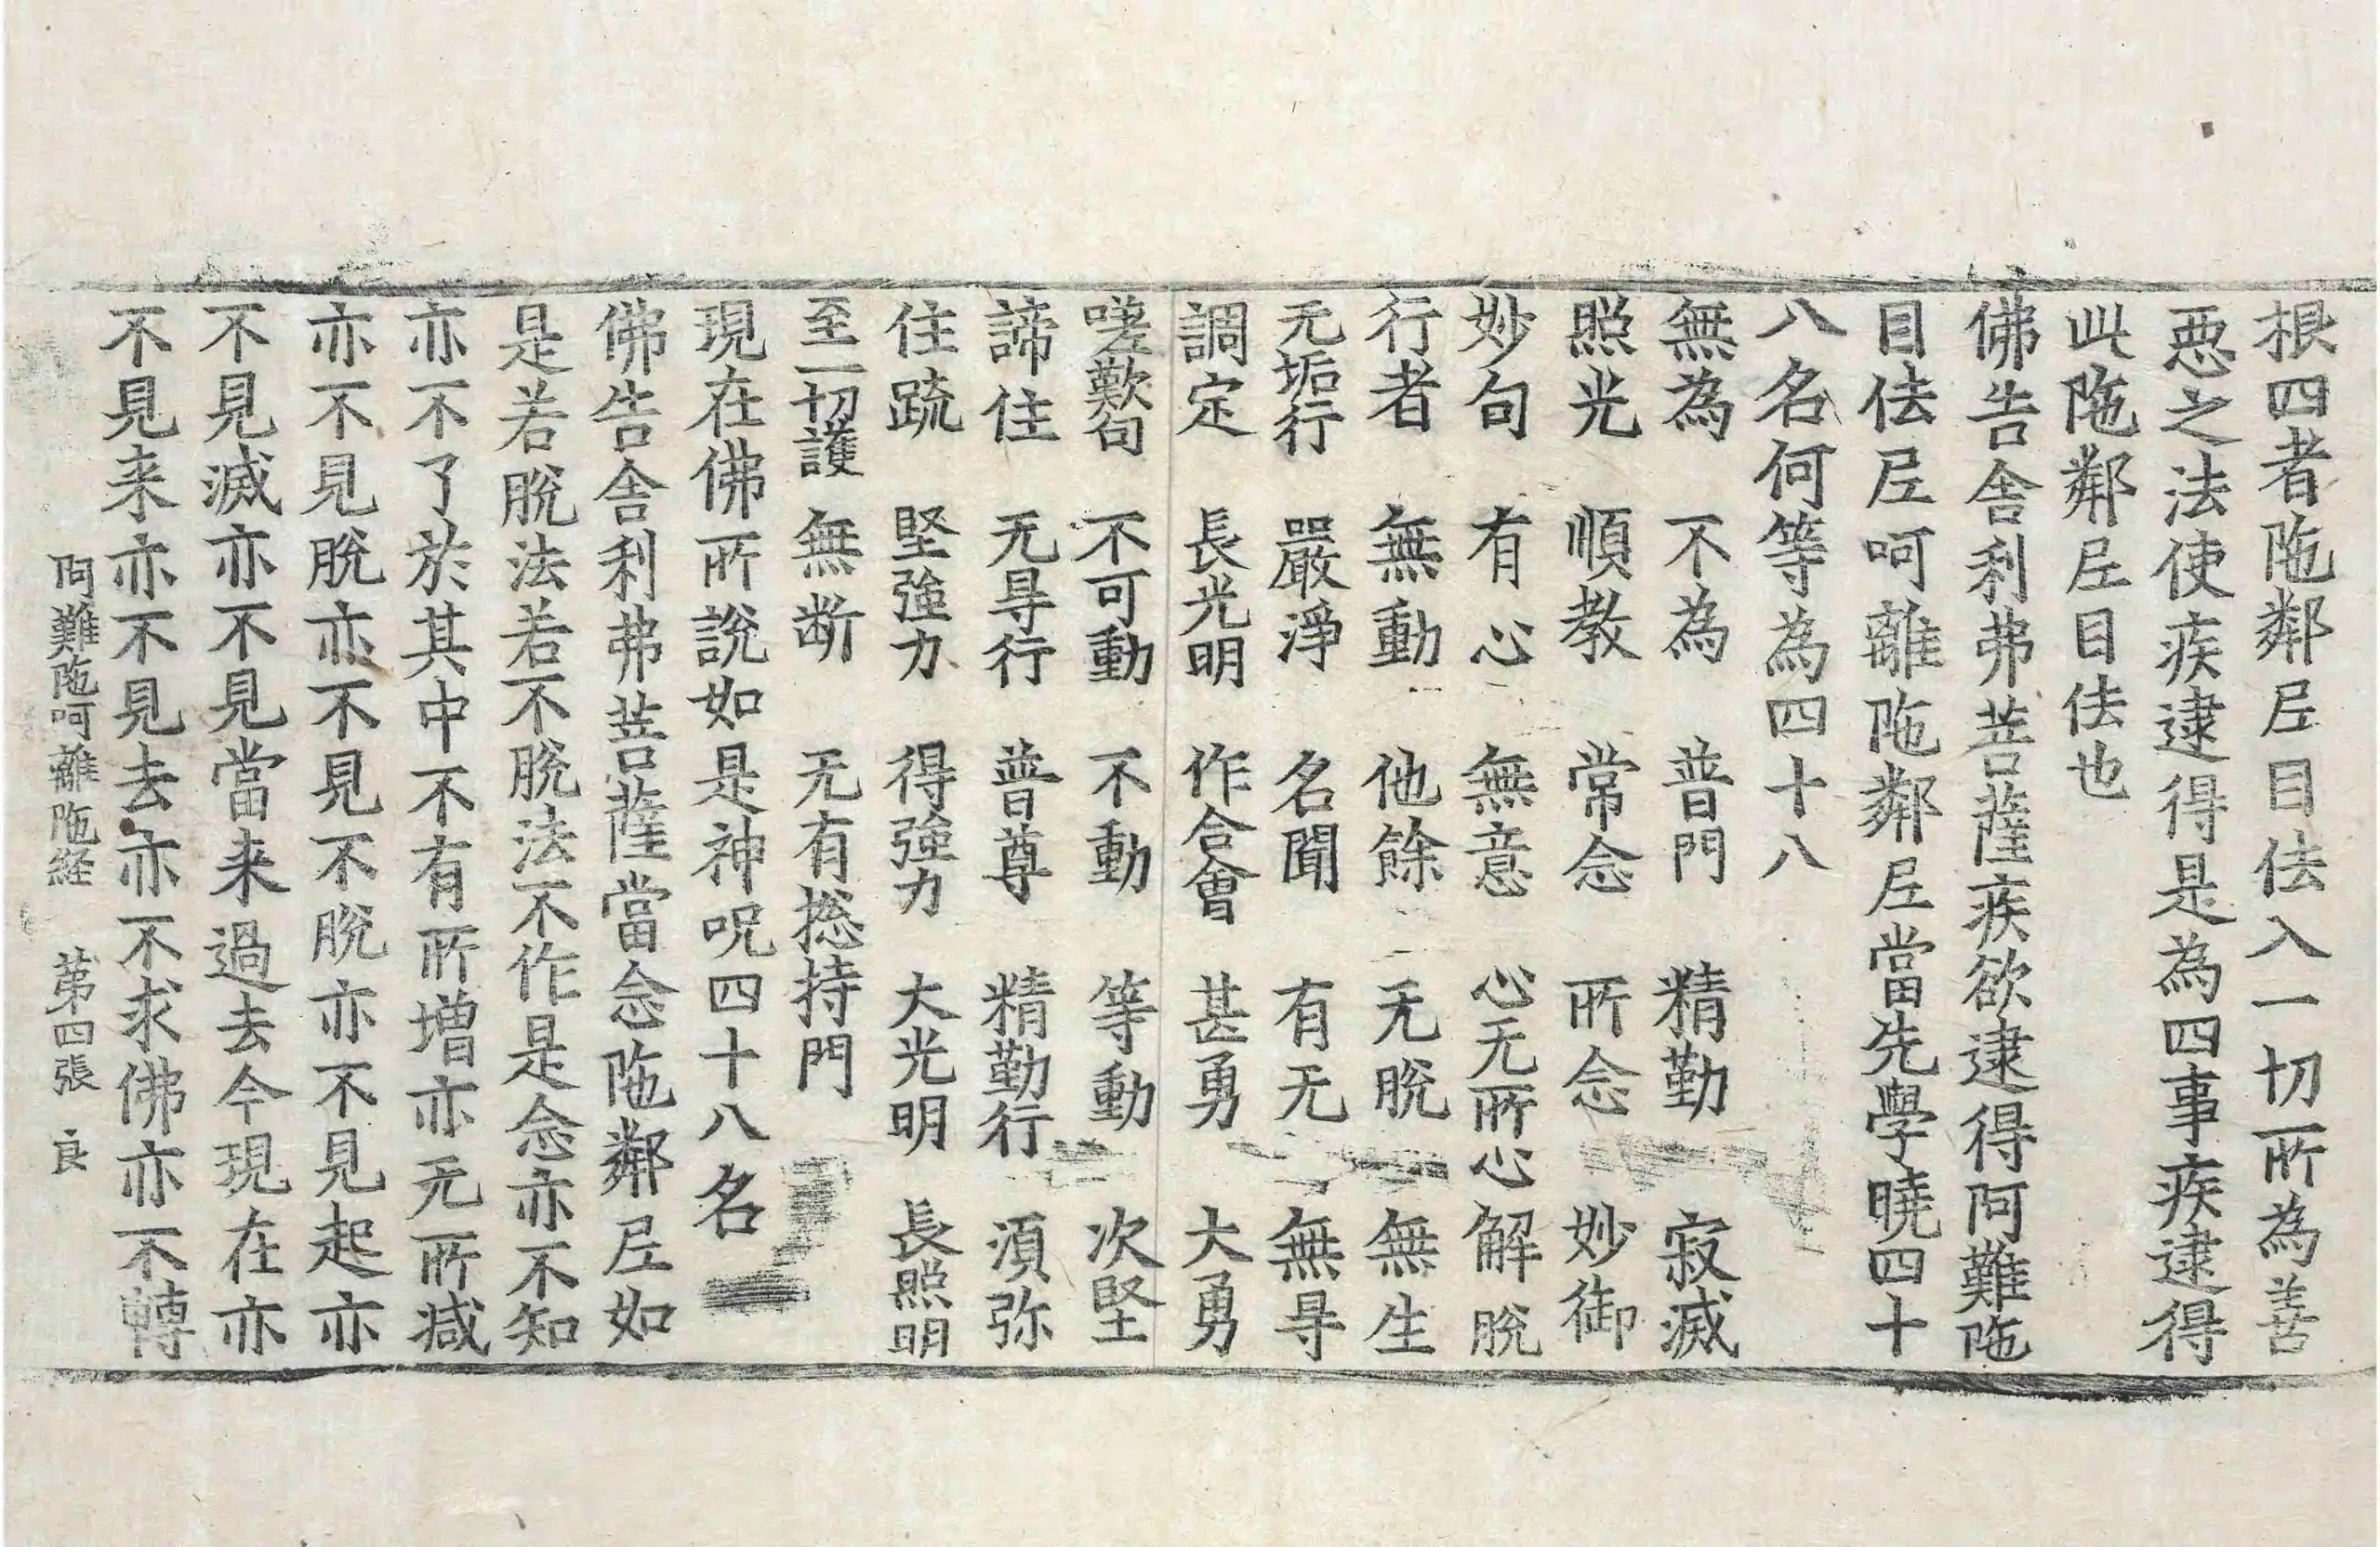 根四者陁鄰尼目佉入一切所為善
惡之法使疾逮得是為四事疾逮得
此陁鄰尼目佉也
佛告舍利弗菩薩疾欲逮得阿難陁
目佉尼呵離陁鄰尼當先學曉四十
八名何等為四十八
無為 不為 普門 精勤 寂滅
照光 順教 常念 所念 妙御
妙句 有心 無意 心无所心 解脫
行者 無動 他餘 无脫 無生
无垢行 嚴淨 名聞 有无 無㝵
調定 長光明 作合會 甚勇 大勇
嗟歎句 不可動 不動 等動 次堅
諦住 无㝵行 普尊 精勤行 湏弥
住䟽 堅強力 得強力 大光明 長照明
至一切護 無断 无有捴持門
現在佛所說如是神呪四十八名
佛告舍利弗菩薩當念陁鄰尼如
是若脫法若不脫法不作是念亦不知
亦不了於其中不有所增亦无所減
亦不見脫亦不見不脫亦不見起亦
不見滅亦不見當来過去今現在亦
不見来亦不見去亦不求佛亦不轉
阿難陁呵離陁経 苐四張 良